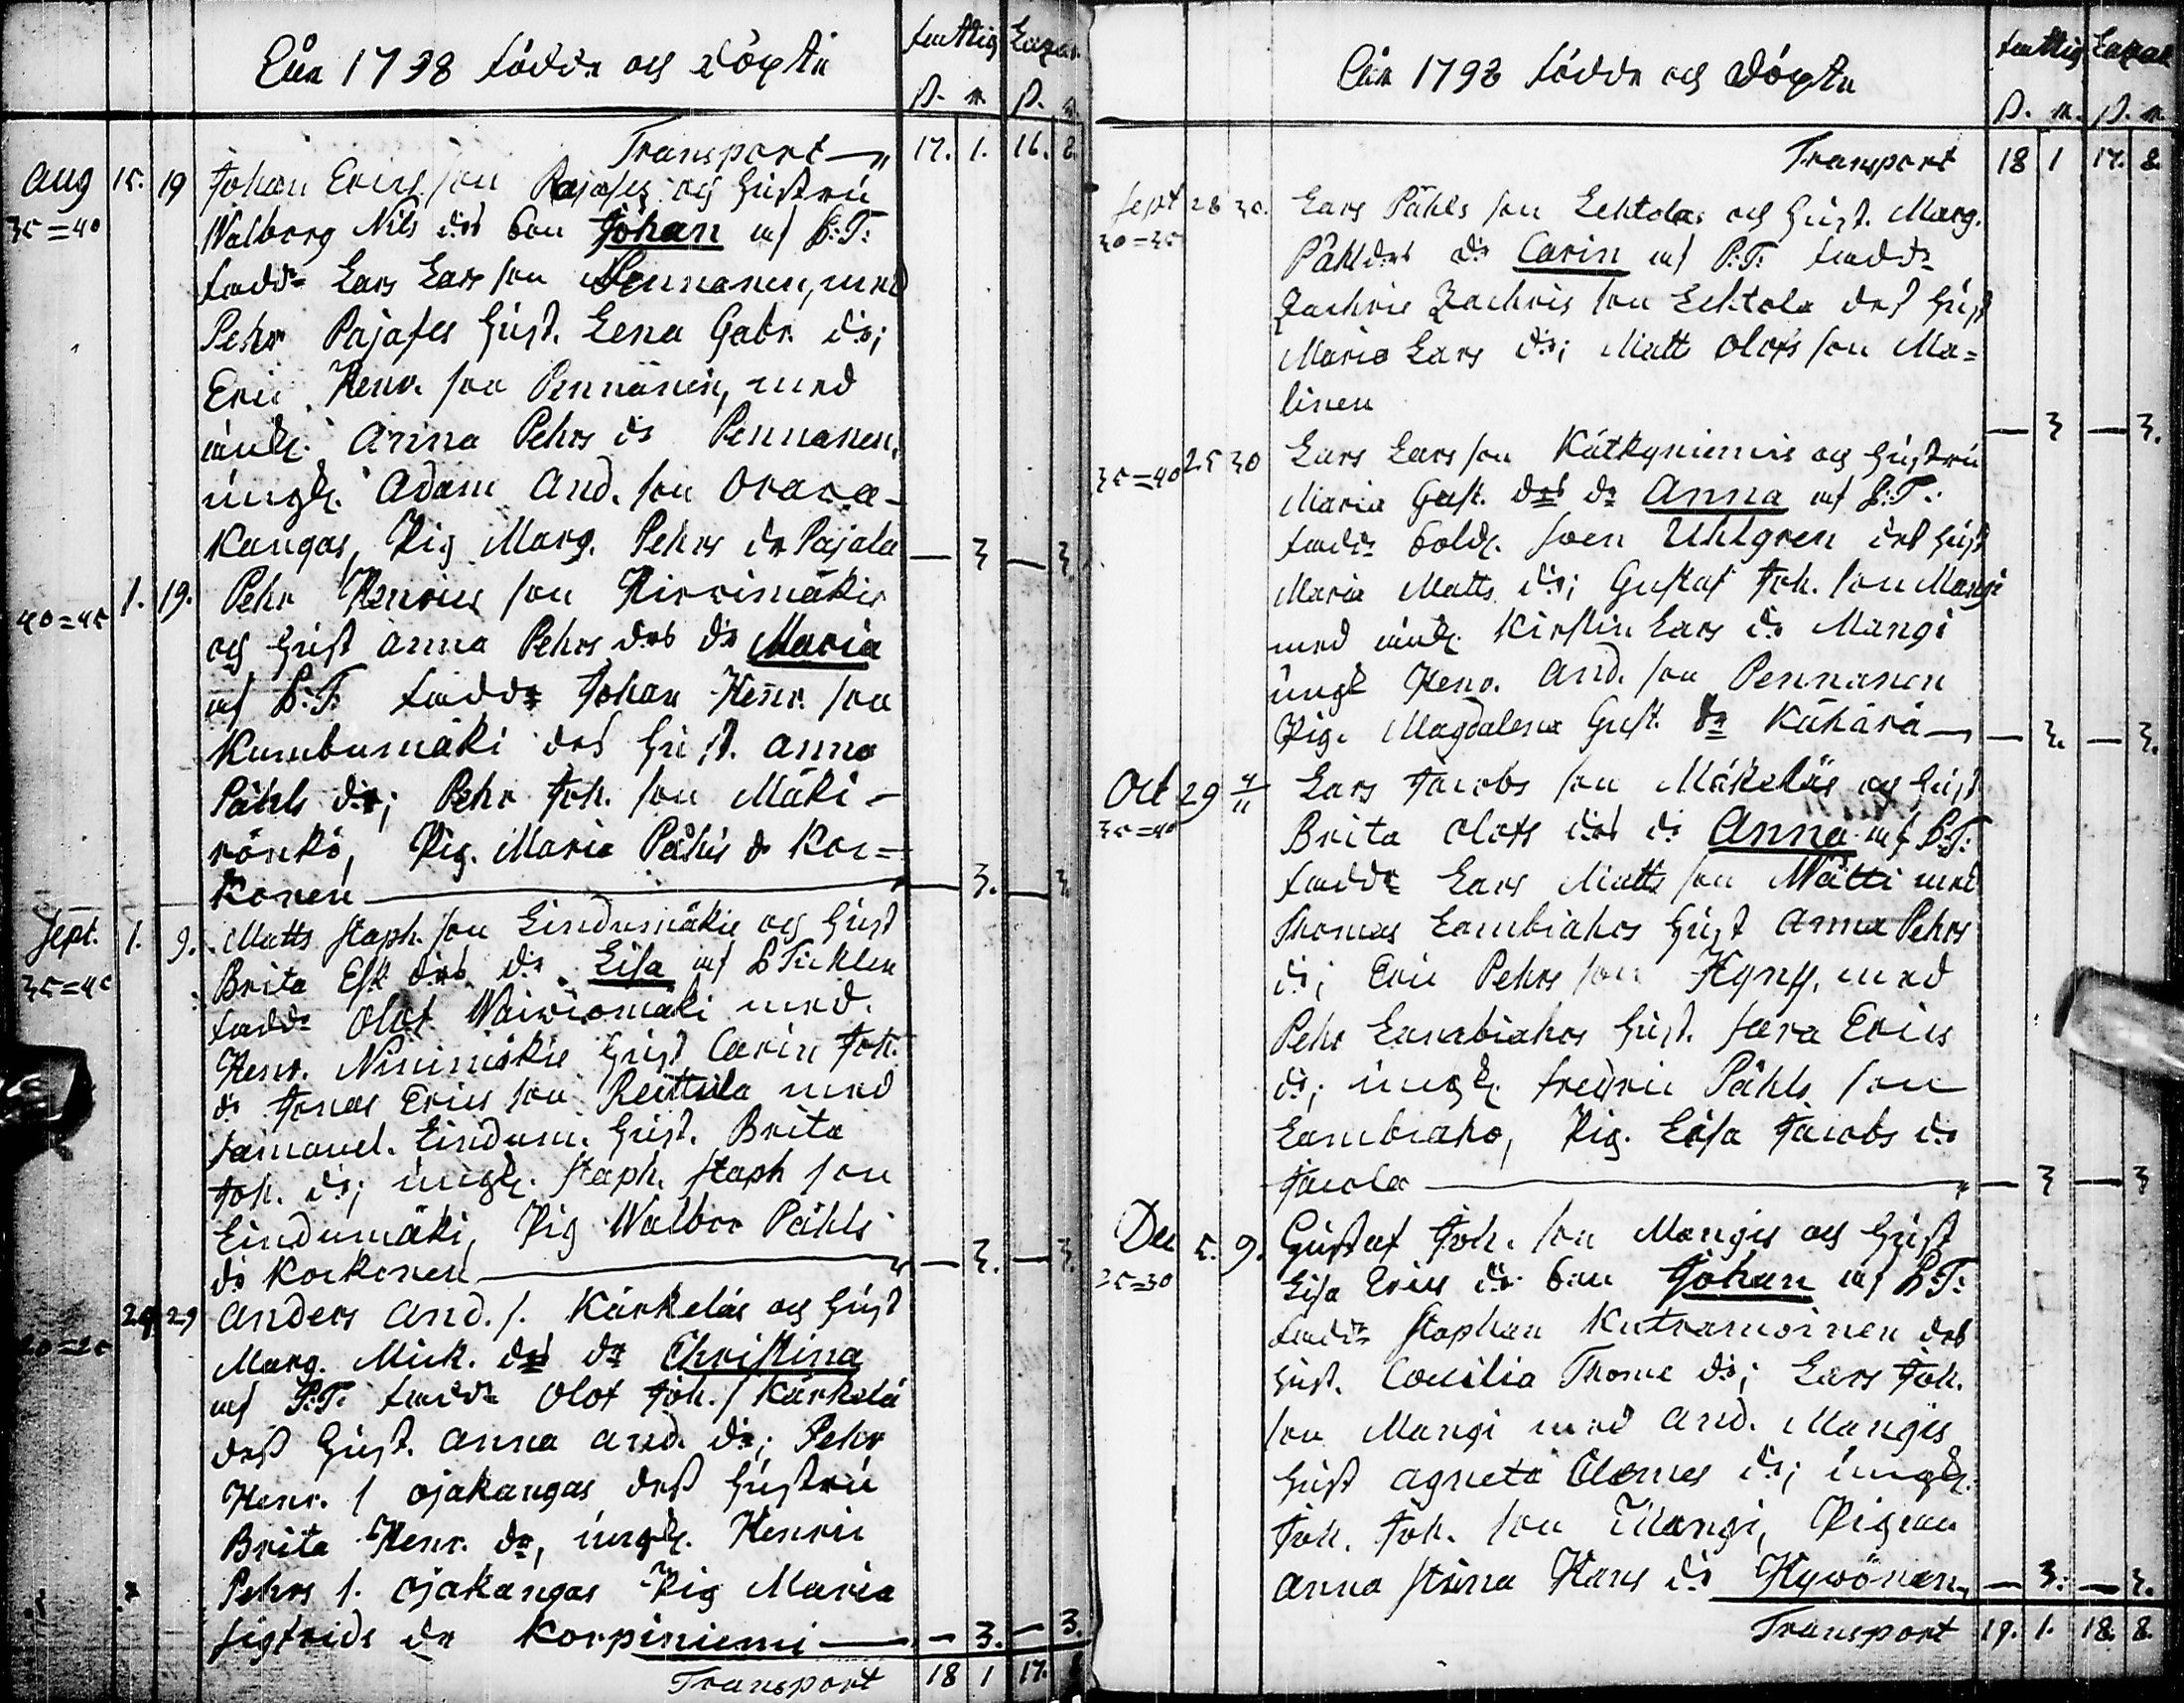 Åhr 1798 födde och döpte
fattig Lazar.
ß. r. ß. r.
Transport — 17. 1. 16. 8.
Aug 15. 19 Johan Erics son Pajases och hustru
35=40 Walborg Nils dr bon Johan af P.T.
fadd: Lars Lars son Pennanen, med
Pehr Pajases hust. Lena Gabr. dr;
Eric Henr. son Pennanen, med
änk. Anna Pehrs dr Pennanen,
ungk. Adam And. son Oraca-
kangas, Pig Marg. Pehrs dr Pajala — 3 — 3.
1. 19. Pehr Henrics son Hirvimäkis
40=45 och hust Anna Pehrs drs dr Maria
af P.T. fadd: Johan Henr. son
Kumbumäki des hust. Anna
Påhls dr; Pehr Joh. son Mäki-
rönkö, Pig. Maria Påhls dr Kor=
konen — 3. — 3.
Sept. 1. 9. Matts Staph. son Lindumäkis och hust
35=40 Brita Esk drs dr Lisa af P Ticklen
fadd: Olof Waiwiomäki med
Henr. Niinimäkis hust Carin Joh.
dr Jonas Erics son Reittula med
Samouel. Lindum. hust. Brita
Joh. dr; ungk. Staph. Staph son
Lindumäki, Pig Walbor Påhls
dr Korkonen — 3. — 3.
29 29 Anders And. s. Kärkeläs och hust
20=25 Marg. Mick. drs dr Christina
af P.T. fadd: Olof Joh. s Kärkelä
dess hust. Anna And. dr; Pehr
Henr. s Ojakangas dess hustru
Brita Henr. dr, ungk. Henric
Pehrs s. Ojakangas Pig Maria
Sigfrids dr Korpiniemi — 3. — 3.
Transport 18 1 17. 8
Åhr 1798 födde och döpte
fattig Lazar
ß. r. ß. r.
Transport 18 1 17. 8.
Sept 28 30. Lars Påhls son Lehtolas och hust. Marg.
20=25 Påhl drs dr Carin af P.T. fadd:
Zachris Zachris son Lehtola des hust
Maria Lars dr; Matt Olofs son Ma=
linen — 3 — 3.
35=40 25 30 Lars Lars son Kätkyniemis och hustru
Maria Gust. drs dr Anna af P.T.
fadd: bold. Sven Uhlgren des hust
Maria Matts dr; Gustaf Joh. son Mangi
med änk. Kirstin Lars dr Mangi
ungk Henr. And. son Pennanen
Pig. Magdalena Gust. dr Kähärä — 3. — 3.
Oct 29 4/11 Lars Jacobs son Mäkeläs och hust
35=40 Brita Olofs drs dr Anna af P.T.
fadd: Lars Matts son Mätti med
Thomas Lambiahos hust Anna Pehrs
dr; Eric Pehrs son Hyny, med
Pehr Lambiahos hust. Sara Erics
dr; ungk. Fredric Påhls son
Lambiaho, Pig. Lisa Jacobs dr
Jacola — 3 — 3
Dec 5. 9. Gustaf Joh. son Mangis och hust
25=30 Lisa Erics dr bon Johan af P.T.
fadd: Staphan Kutramoinen des
hust. Cecilia Thome dr; Lars Joh.
son Mangi med And. Mangis
hust Agneta Clemes dr; ungk.
Joh. Joh. son Mangi, Pigan
Anna Stina Hans dr Hywönen — 3. — 3.
Transport 19. 1. 18. 8.